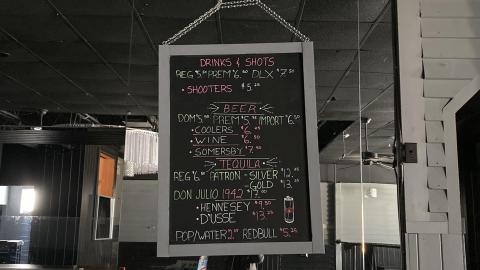 DRINKS & SHOTS
REG $5. PREM $6. DLX $7.50
• SHOOTERS $5.25
BEER
DOM 5. PREM $5. IMPORT $6.50
• COOLERS $6.
• WINE $6.
• SOMERSBY $7.
TEQUILA
REG $6. PATRON - SILVER $12.
- GOLD $13.
DON JULIO 1942 $17.
• HENNESEY $9.50
• D'USSE $13.25
POP/WATER 2. REDBULL $5.25